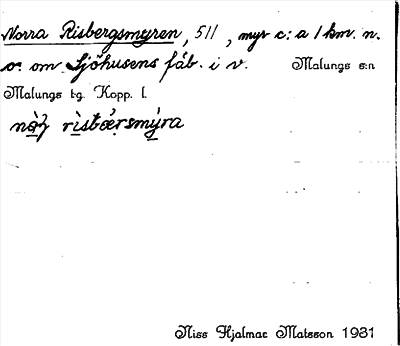 Norra Risbergsmyren, 511, myr c:a 1 km. n.
o. om Sjöhusens fäb. i v. Malungs s:n
Malungs tg. Kopp. l.
Niss Hjalmar Matsson 1931